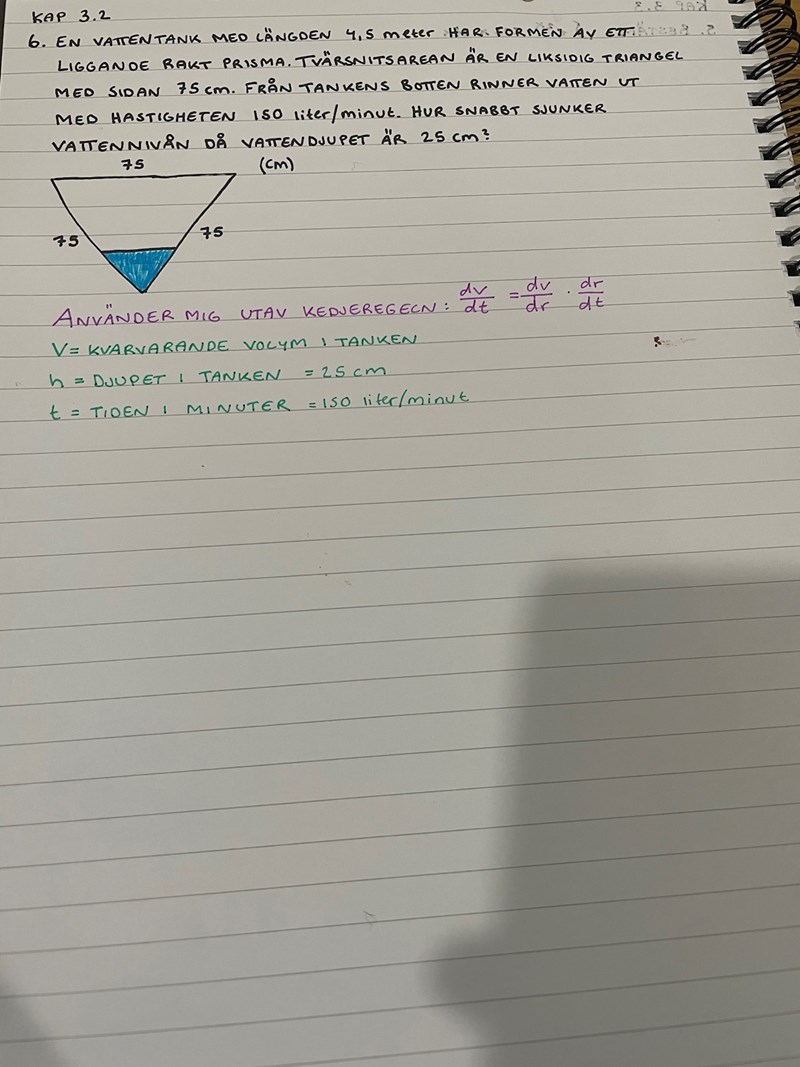 KAP 3.2
6. EN VATTENTANK MED LÄNGDEN 4,5 meter HAR FORMEN AV ETT
LIGGANDE RAKT PRISMA. TVÄRSNITSAREAN ÄR EN LIKSIDIG TRIANGEL
MED SIDAN 75 cm. FRÅN TANKENS BOTTEN RINNER VATTEN UT
MED HASTIGHETEN 150 liter/minut. HUR SNABBT SJUNKER
VATTENNIVÅN DÅ VATTENDJUPET ÄR 25 cm?
75 (cm)
75 75
ANVÄNDER MIG UTAV KEDJEREGELN: dv/dt = dv/dr · dr/dt
V= KVARVARANDE VOLYM I TANKEN
h = DJUPET I TANKEN = 25 cm
t = TIDEN I MINUTER = 150 liter/minut